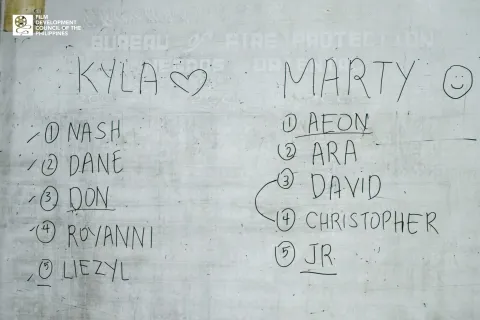 FILM
DEVELOPMENT
COUNCIL OF THE
PHILIPPINES
BUREAU OF FIRE PROTECTION
KYLA
① NASH
② DANE
③ DON
④ ROYANNI
⑤ LIEZYL
MARTY
① AEON
② ARA
③ DAVID
④ CHRISTOPHER
⑤ JR